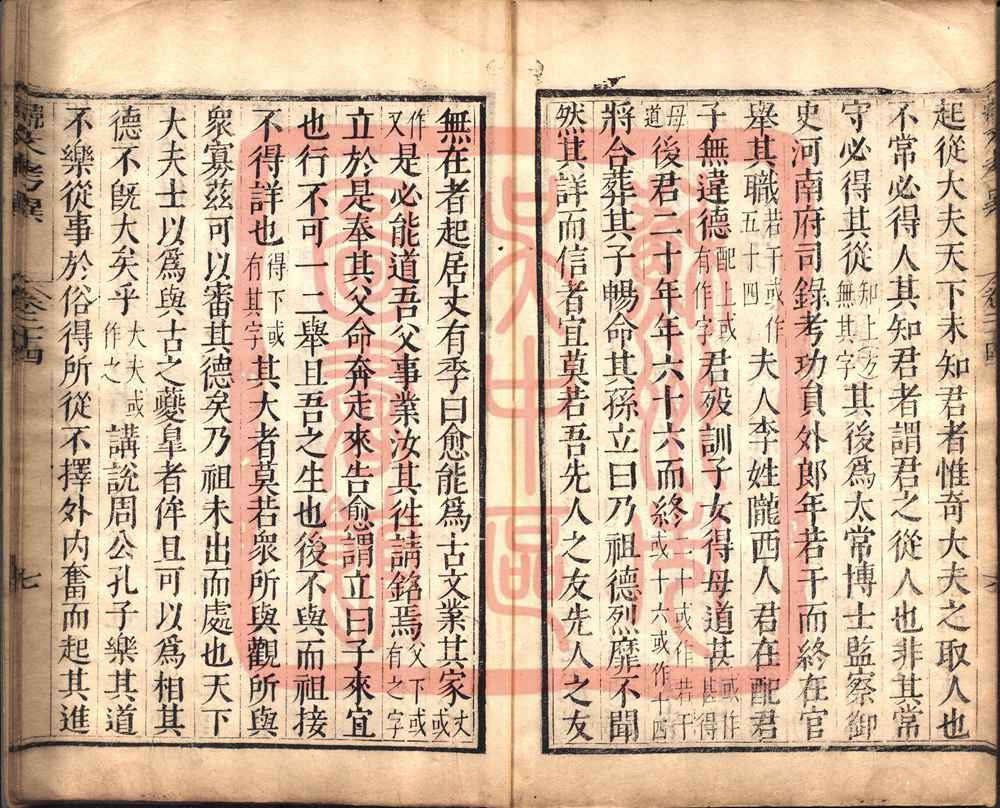 起從大夫天下未知君者惟奇大夫之取人也
不常必得人其知君者謂君之從人也非其常
守必得其從知上方無其字其後爲太常博士監察御
史河南府司錄考功員外郎年若干而終在官
舉其職若干或作五十四夫人李姓隴西人君在配君
子無違德配上或有作字君歿訓子女得母道甚或作甚得
母道後君二十年年六十六而終二十或作若干或十六或作十四
將合葬其子暢命其孫立曰乃祖德烈靡不聞
然其詳而信者宜莫若吾先人之友先人之友
無在者起居丈有季曰愈能爲古文業其家丈或
作又是必能道吾父事業汝其徃請銘焉父下或有之字
立於是奉其父命奔走來告愈謂立曰子來宜
也行不可一二舉且吾之生也後不與而祖接
不得詳也得下或有其字其大者莫若衆所與觀所與
衆寡茲可以審其德矣乃祖未出而處也天下
大夫士以爲與古之夔皐者侔且可以爲相其
德不旣大矣乎大夫或作之講說周公孔子樂其道
不樂從事於俗得所從不擇外内奮而起其進
韓文考異
卷二十四
七
吳中區
圖書館